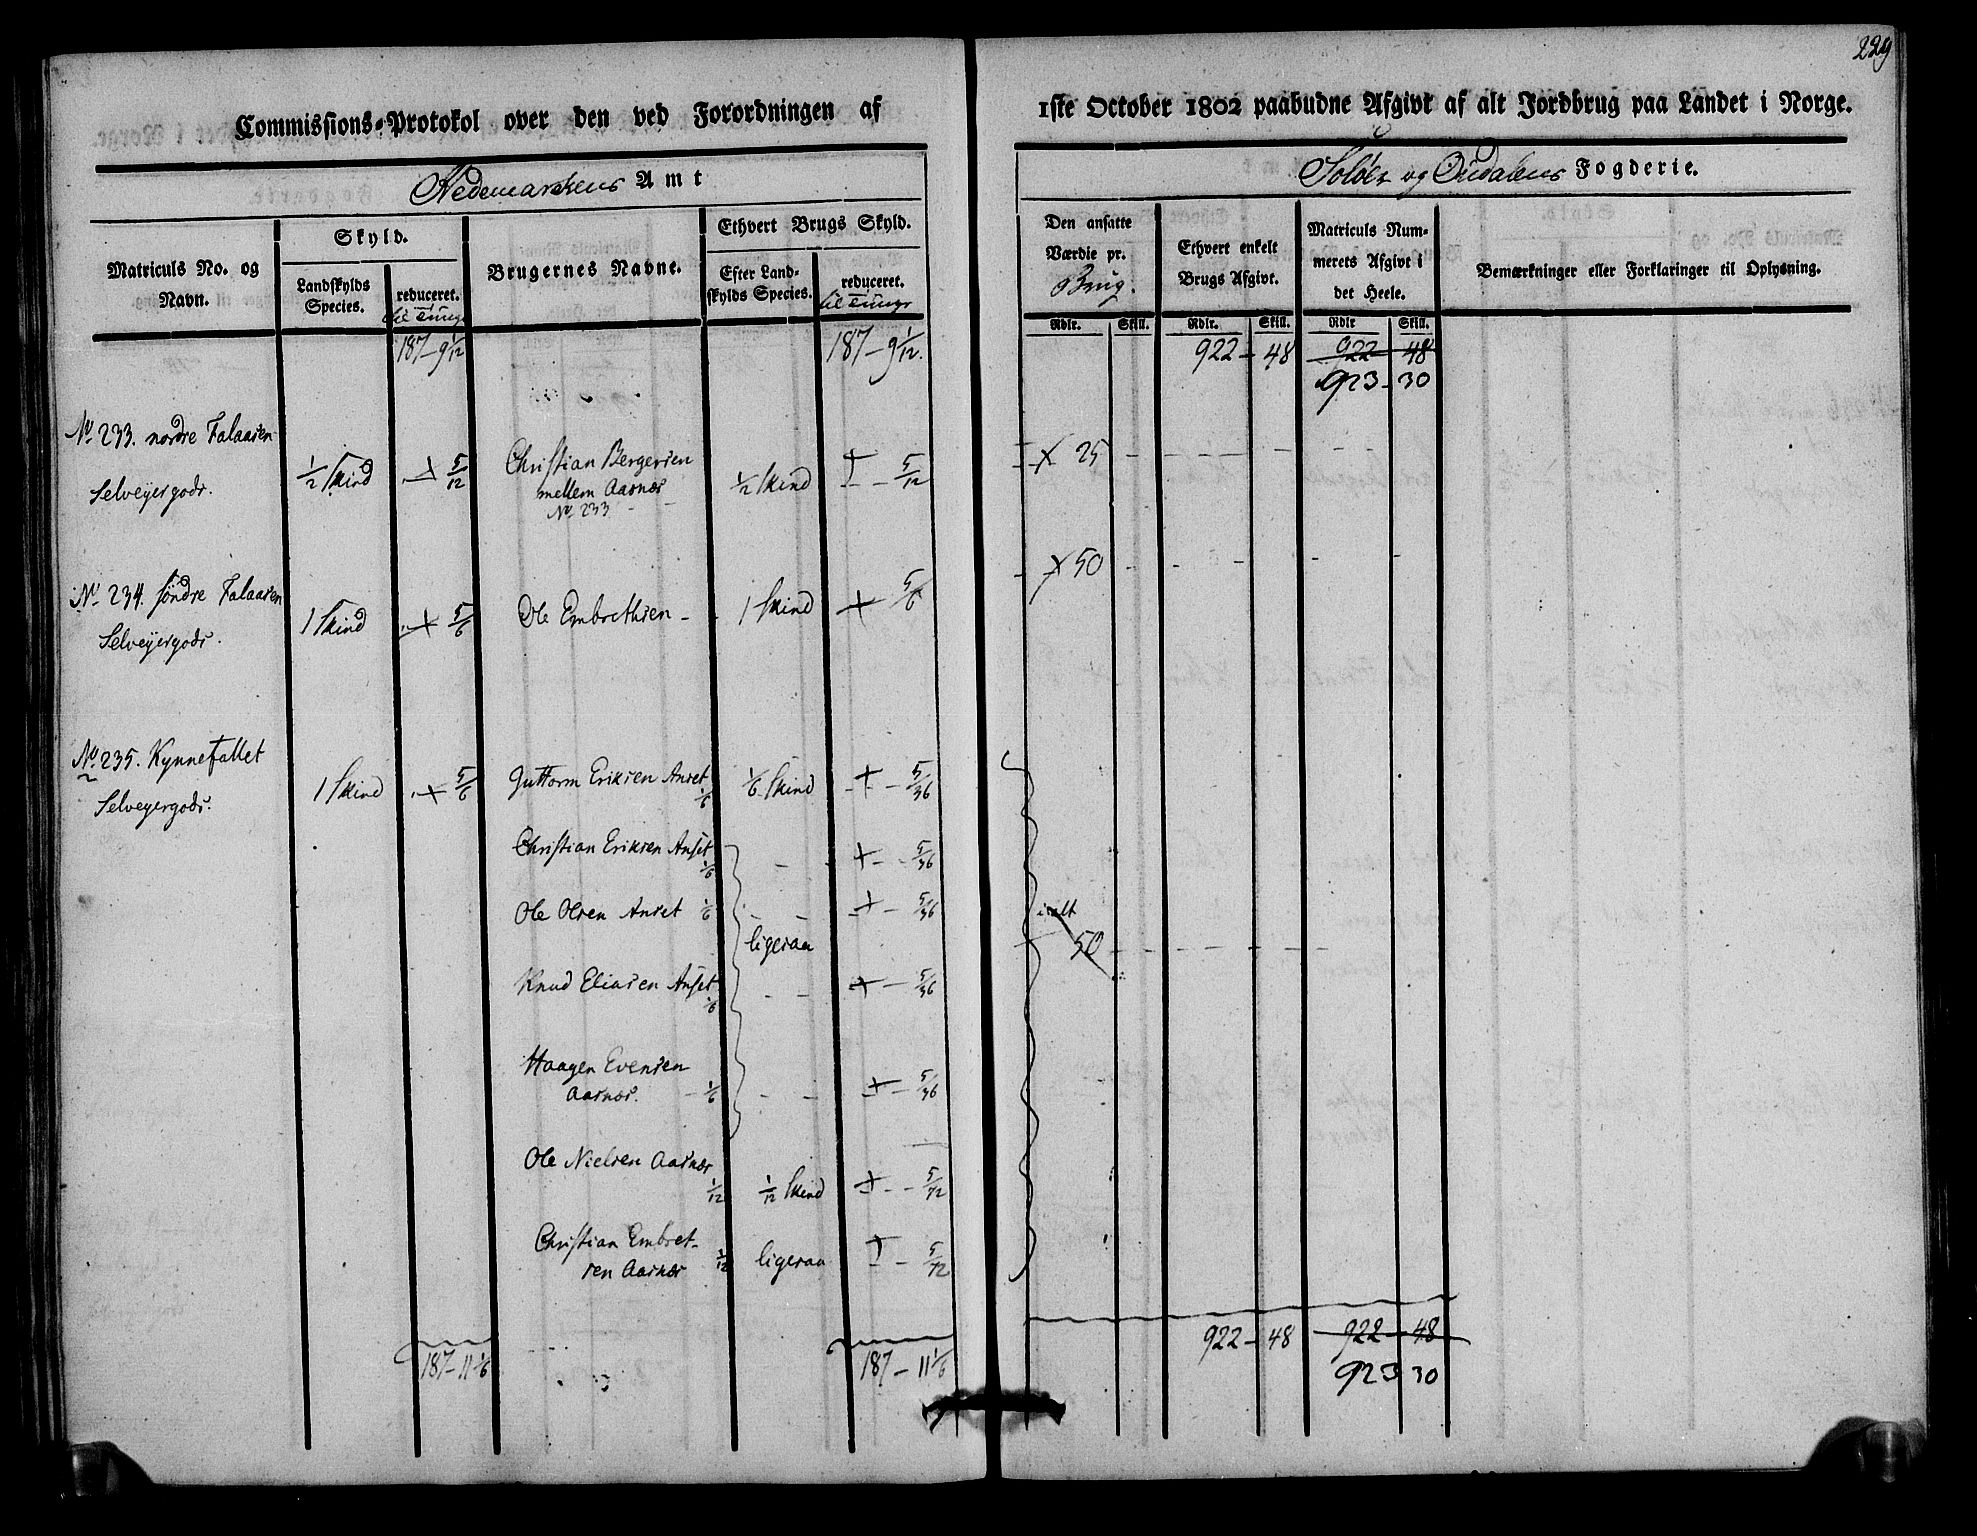 229
Commissions-Protokol over den ved Forordningen af 1ste October 1802 paabudne Afgivt af alt Jordbrug paa Landet i Norge.
Hedemarkens Amt
Soløer og Oudalens Fogderie.
Matriculs No. og Navn.
Skyld.
Landskylds Species.
reduceret. til Tunge
Brugernes Navne.
Ethvert Brugs Skyld.
Efter Landskylds Species.
reduceret. til Tunge
Den ansatte Værdie pr. Brug.
Ethvert enkelt Brugs Afgivt.
Matriculs Nummerets Afgivt i det Heele.
Bemærkninger eller Forklaringer til Oplysning.
Rdlr. Skill. Rdlr. Skill. Rdlr Skill.
187 - 9 1/12 187 - 9 1/12. 922 - 48 922 - 48
923 - 30
No 233. nordre Falaasen
Selveyergods.
1/2 Skind 5/12
Christian Bergersen
mellem Aasnæs
No 233
1/2 Skind 5/12 25
No 234. søndre Falaasen
Selveyergods.
1 Skind 5/6 Ole Embrethsen - 1 Skind 5/6 50
No 235. Kynnefallet
Selveyergods.
1 Skind 5/6 Guttorm Eriksen Anset 1/6 1/6 Skind 5/36
Christian Eriksen Anset 1/6 - 5/36
Ole Olsen Anset 1/6 - - 5/36
ligesaa
i alt
50
Knud Eliasen Anset 1/6 - - 5/36
Haagen Evensen
Aasnæs. - 1/6 - - 5/36
Ole Nielsen Aasnæs 1/12 1/12 Skind 5/72
Christian Embret-
sen Aasnæs 1/12 ligesaa 5/72
187 - 11 1/6 187 - 11 1/6 922 - 48 922 - 48
923 30